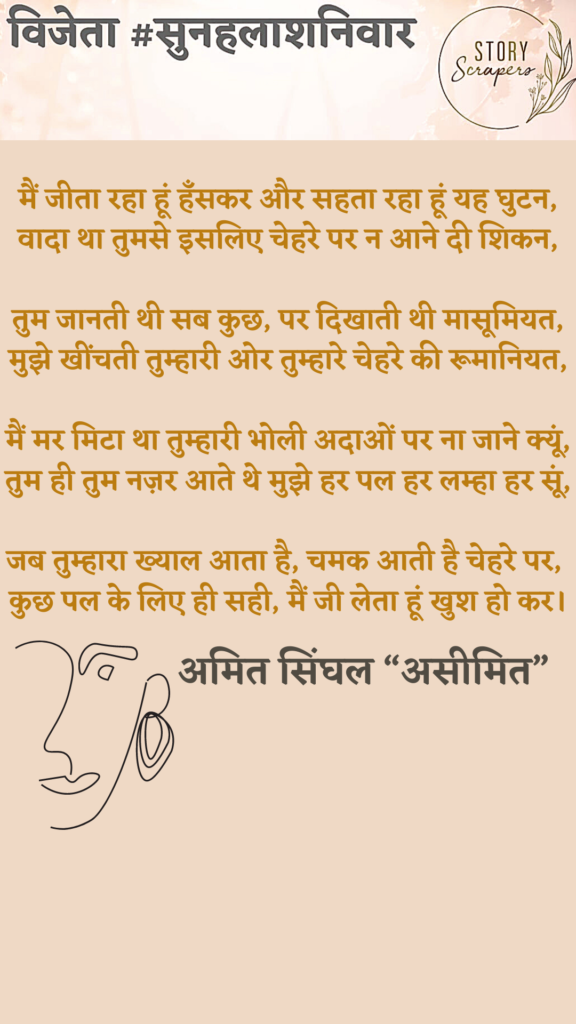 विजेता #सुनहलाशनिवार
STORY
Scrapers
मैं जीता रहा हूं हँसकर और सहता रहा हूं यह घुटन,
वादा था तुमसे इसलिए चेहरे पर न आने दी शिकन,
तुम जानती थी सब कुछ, पर दिखाती थी मासूमियत,
मुझे खींचती तुम्हारी ओर तुम्हारे चेहरे की रूमानियत,
मैं मर मिटा था तुम्हारी भोली अदाओं पर ना जाने क्यूं,
तुम ही तुम नज़र आते थे मुझे हर पल हर लम्हा हर सूं,
जब तुम्हारा ख्याल आता है, चमक आती है चेहरे पर,
कुछ पल के लिए ही सही, मैं जी लेता हूं खुश हो कर।
अमित सिंघल “असीमित”